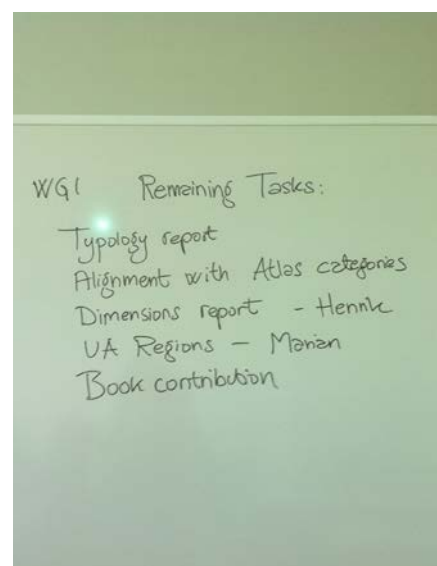 WG1 Remaining Tasks:
Typology report
Alignment with Atlas categories
Dimensions report - Henrik
UA Regions - Marian
Book contribution